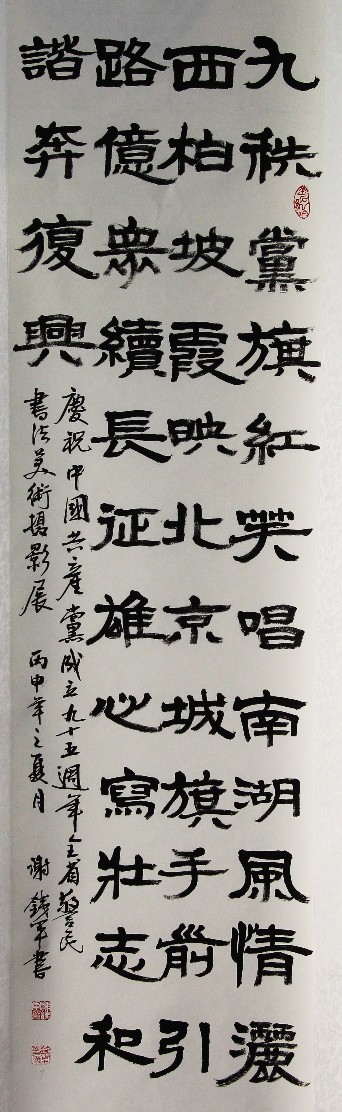 九秩黨旗紅笑唱南湖風情灑
西柏坡霞映北京城旗手前引
路億眾續長征雄心寫壯志和
諧奔復興
慶祝中國共產黨成立九十五週年全省警民
書法美術攝影展 丙申年之夏月 謝錢軍書